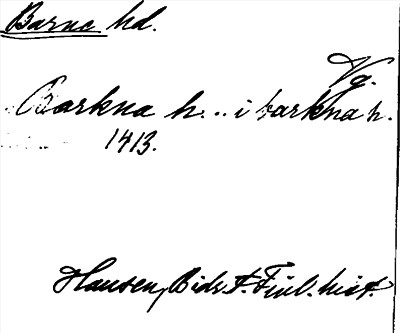 Barna hd.
Vg.
Barkna h. .. i barkna h.
1413.
Hausen, Bidr t. Finl. hist.